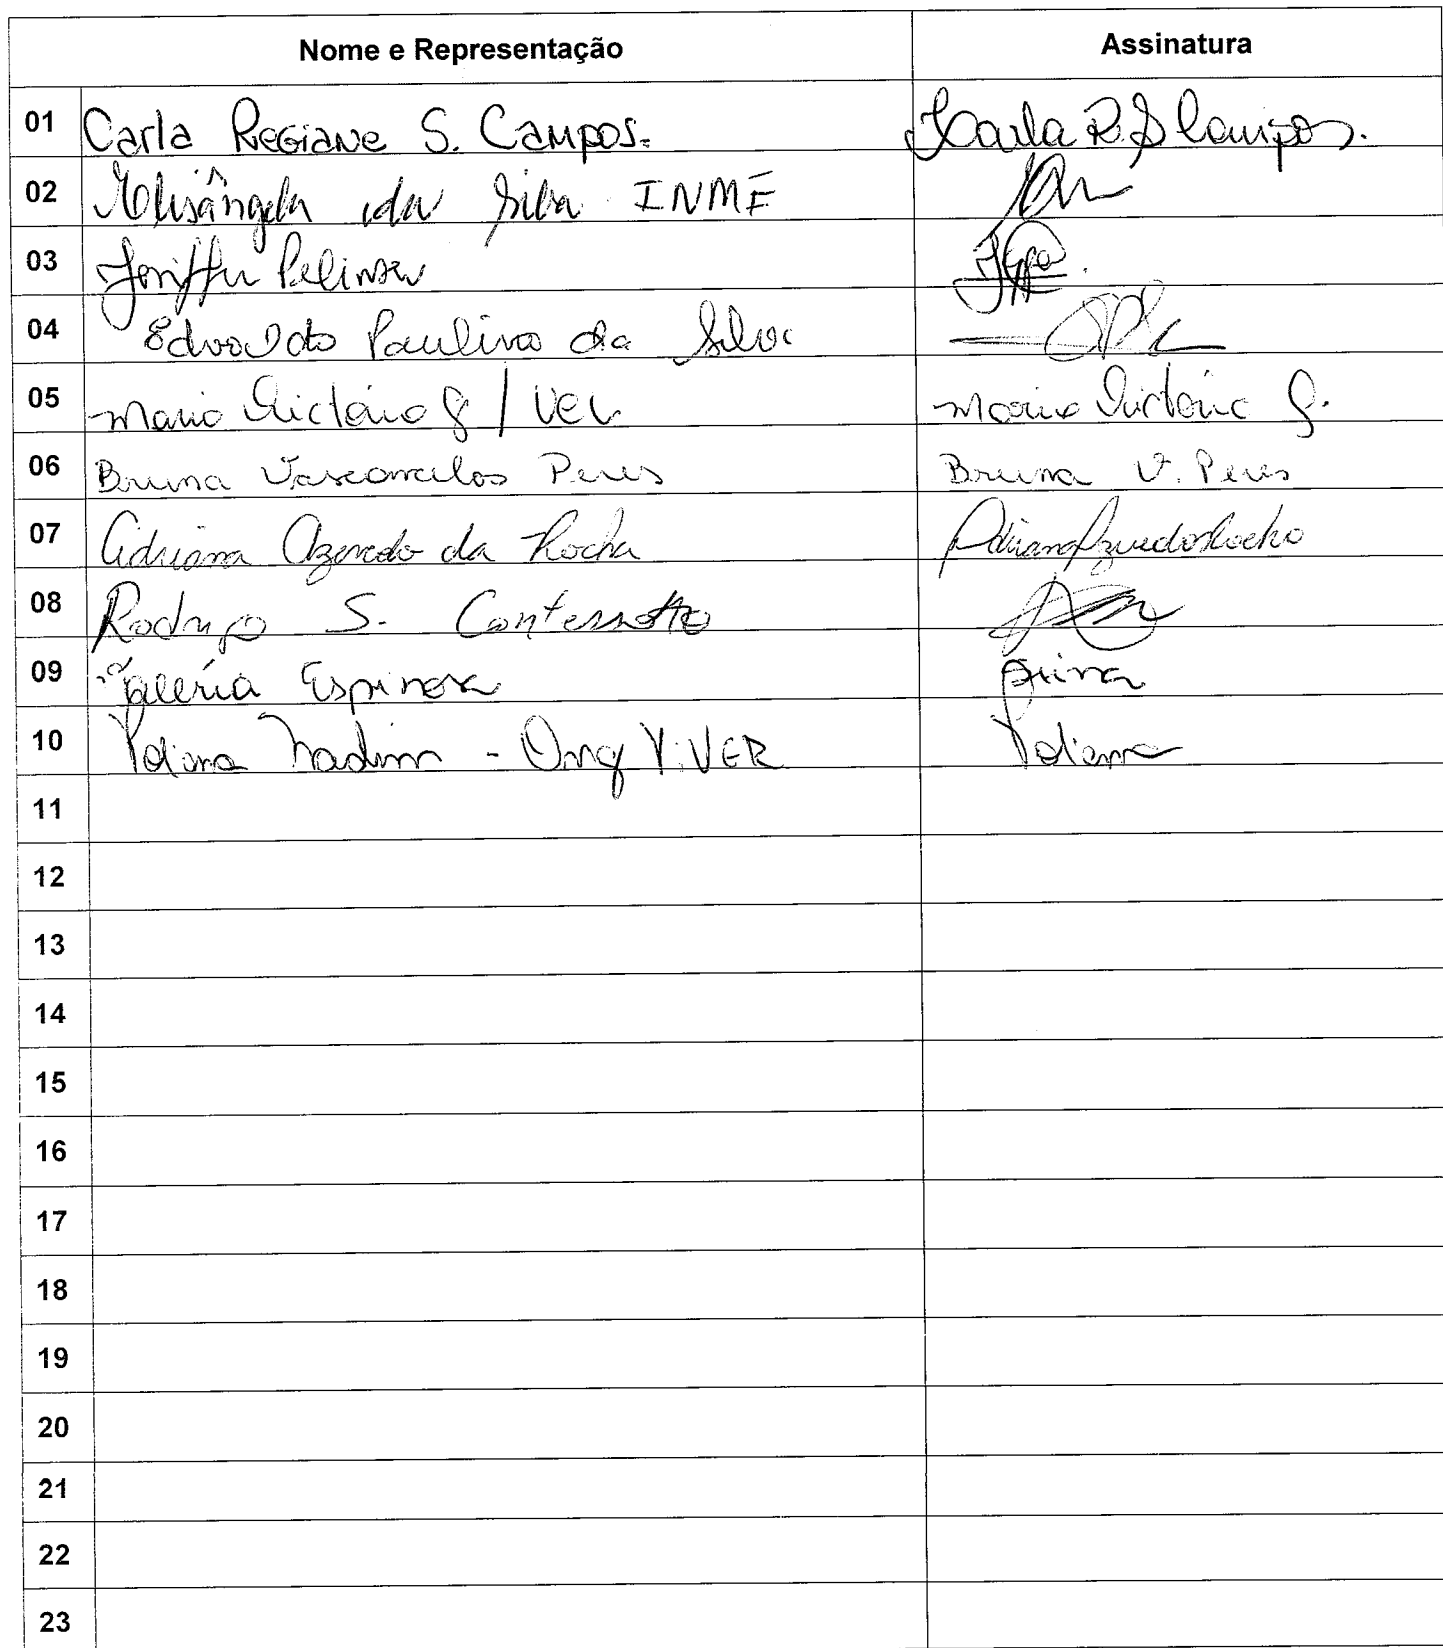 Nome e Representação Assinatura
01 Carla Regiane S. Campos. Carla R. S. Campos.
02 Elisângela da Silva INME
03 Jeniffer
04 Edvaldo Paulino da Silva
05 Maria Victória G / Ver Maria Victória G.
06 Bruna Vasconcelos Peres Bruna V. Peres
07 Adriana Azevedo da Rocha Adriana Azevedo Rocha
08 Rodrigo S. Contessotto
09 Valéria Espinosa
10 Poliana Nadim - Ong ViVER Poliana
11
12
13
14
15
16
17
18
19
20
21
22
23